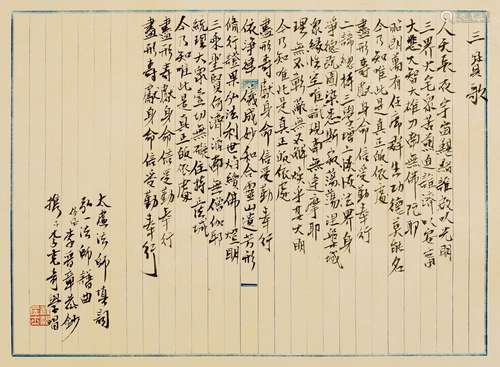 三寶歌
人天長夜宇宙黮闇誰啟以光明
三界火宅眾苦煎迫誰濟以安寧
大悲大智大雄力南無佛陀耶
昭朗萬有衽席群生功德莫能名
今乃知唯此是真正皈依處
盡形壽獻身命信受勤奉行
二諦總持三學增上恢恢法界身
淨德既圓染患斯寂蕩蕩涅槃城
眾緣性空唯識現南無達摩耶
理無不彰蔽無不解煥乎其大明
今乃知唯此是真正皈依處
盡形壽獻身命信受勤奉行
依淨律儀成妙和合靈山遺芳形
修行證果弘法利世焰續佛燈明
三乘聖賢何濟濟南無僧伽耶
統理大眾一切無礙住持正法城
今乃知唯此是真正皈依處
盡形壽獻身命信受勤奉行
盡形壽獻身命信受勤奉行
太虛法師填詞
弘一法師譜曲
李普恭鈔
攜子李克奇學唱